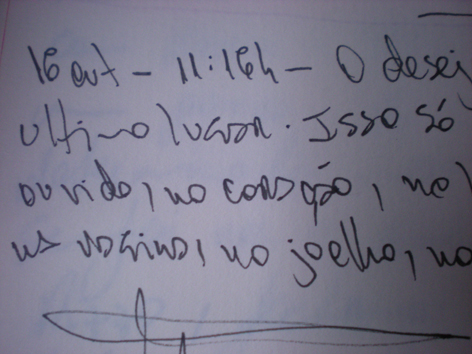 16 out - 11:16h - O desei
ultimo lugar. Isso só
ouvido, no coração, no
no joelho, no